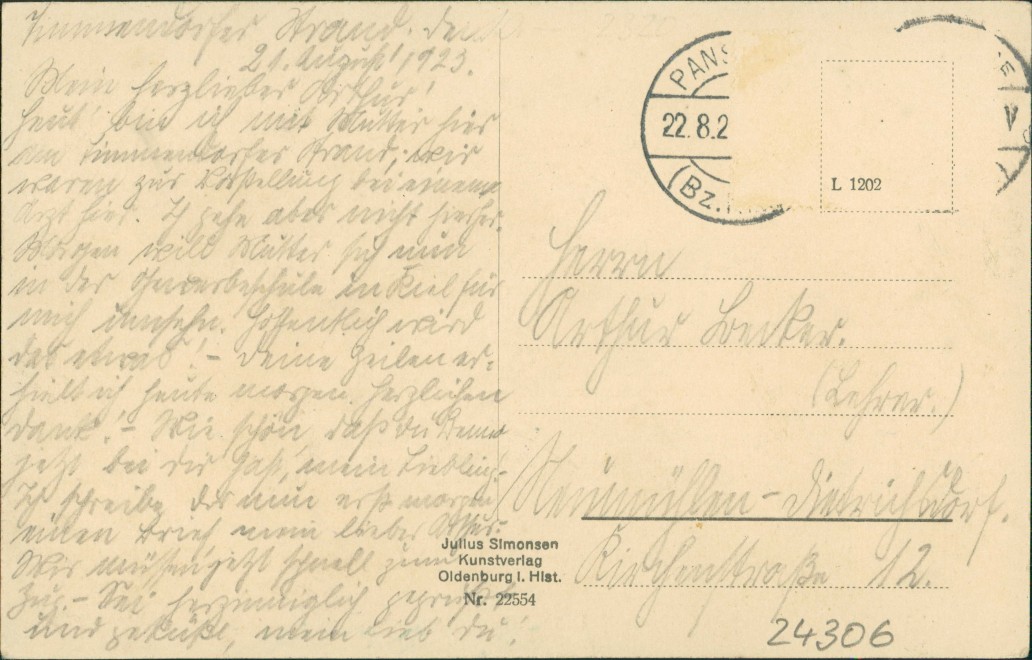 Timmendorfer Strand. den
21. August 1923.
Mein herzlieber Arthur!
Heut' bin ich mit Mutter hier
am Timmendorfer Strand, wir
waren zur Vorstellung bei einem
Arzt hier. Ich gehe aber nicht hierher.
Morgen will Mutter sich nun
in der Gewerbeschule in Kiel für
mich umsehn. Hoffentlich wird
das etwas! – Deine Zeilen er-
hielt ich heute morgen. Herzlichen
Dank! – Wie schön, daß du
jetzt bei dir hast, mein Liebling.
Ich schreibe dir nun erst morgen
einen Brief mein lieber Arthur.
Wir müssen jetzt schnell zum
Zug. – Sei herzinniglich gegrüßt
und geküßt, mein lieb du!
PANS
22.8.2
(Bz.
L 1202
Herrn
Arthur Becker.
(Lehrer.)
Neumühlen-Dietrichsdorf.
Kirchenstraße 12.
Julius Simonsen
Kunstverlag
Oldenburg i. Hlst.
Nr. 22554
24306